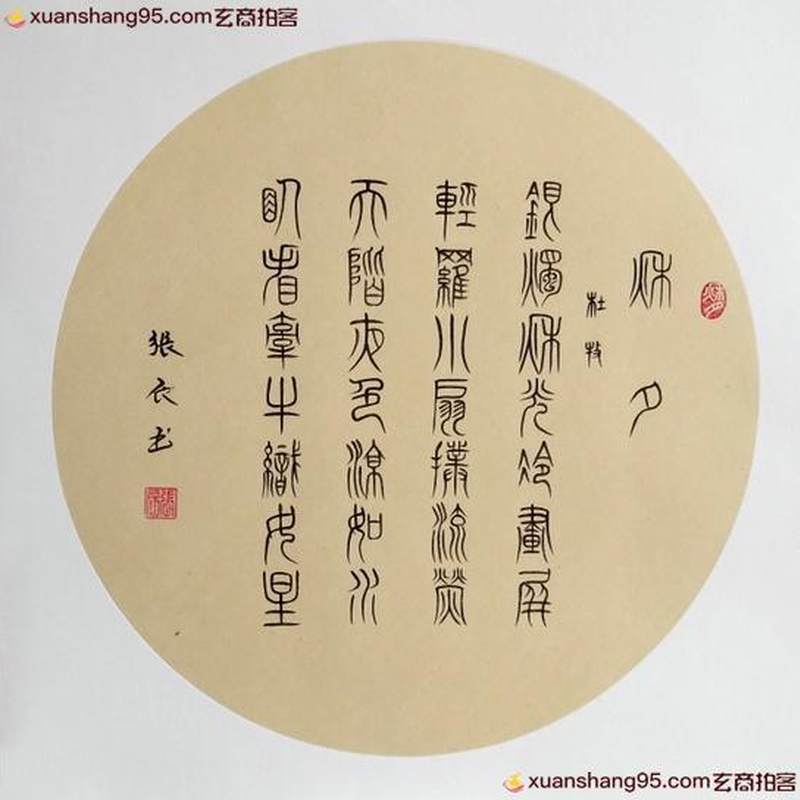 xuanshang95.com玄商拍客
秋夕
杜牧
銀燭秋光冷畫屏
輕羅小扇撲流螢
天階夜色涼如水
臥看牽牛織女星
張 书
xuanshang95.com玄商拍客